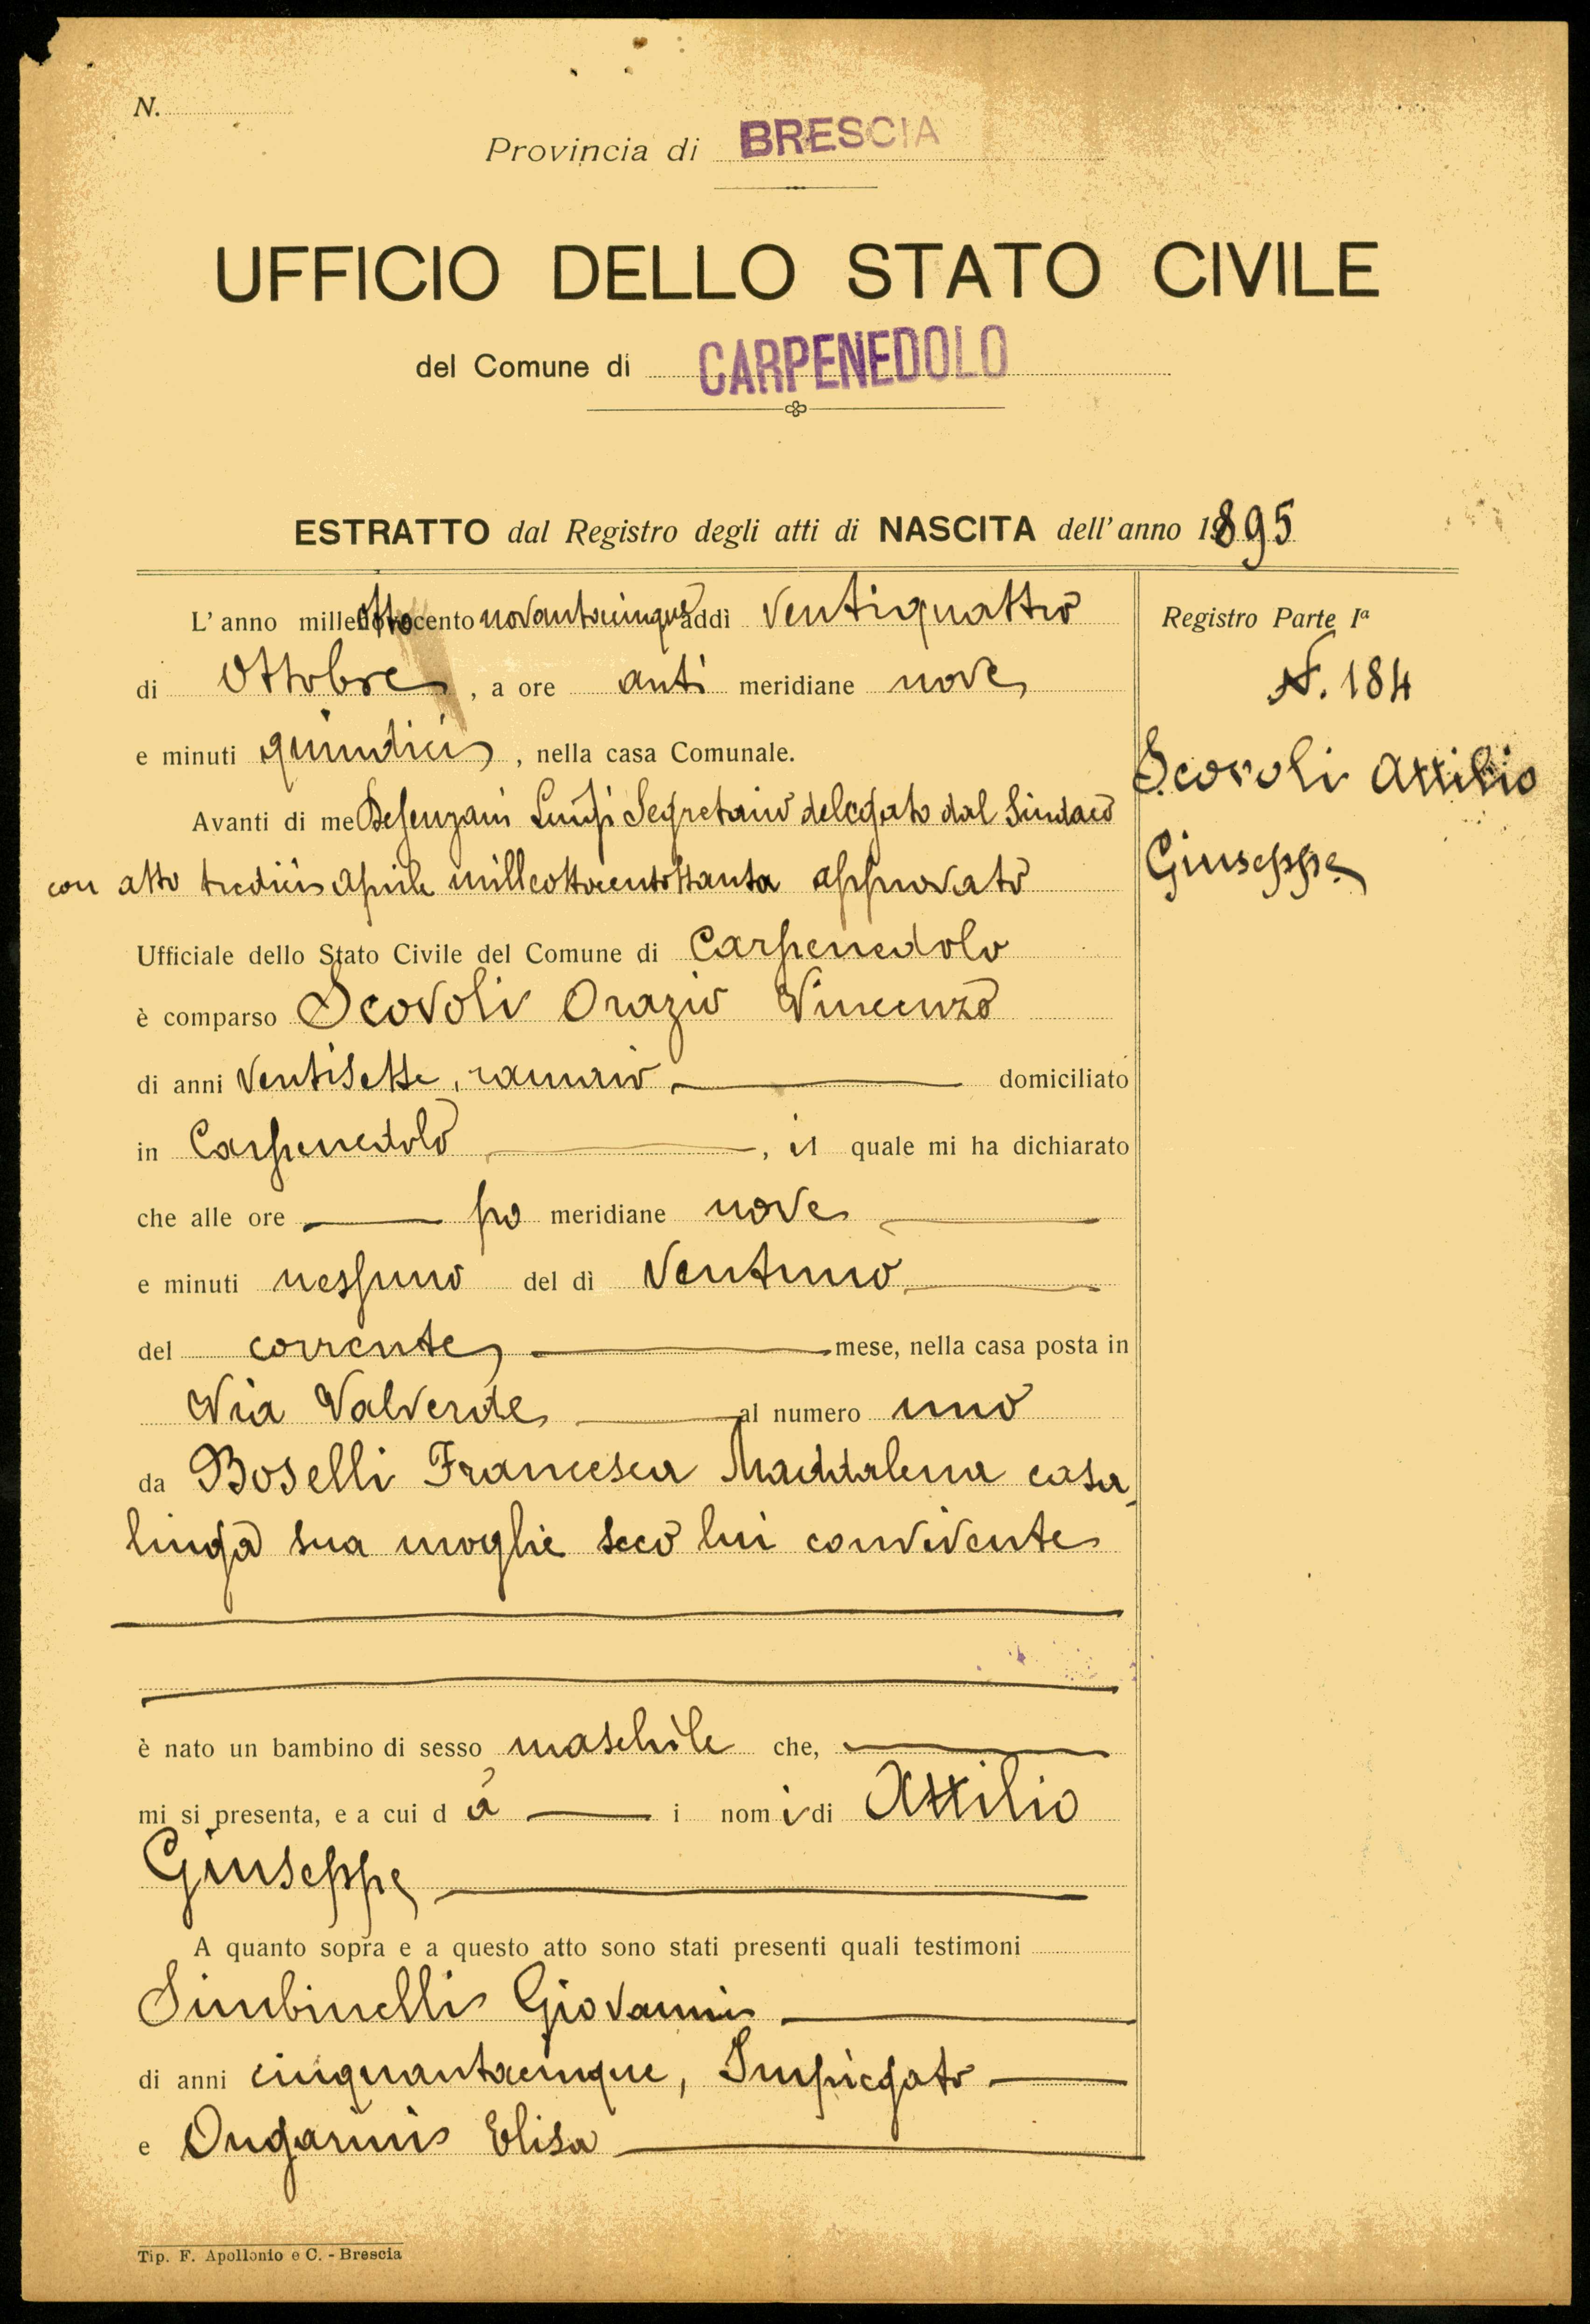 N.
Provincia di BRESCIA
UFFICIO DELLO STATO CIVILE
del Comune di CARPENEDOLO
ESTRATTO dal Registro degli atti di NASCITA dell'anno 1895
L'anno milleottocentonovantacinque addì ventiquattro
di Ottobre, a ore anti meridiane nove
e minuti quindici, nella casa Comunale.
Avanti di me Desenzani Luigi Segretario delegato dal Sindaco
con atto tredici Aprile milleottocentottanta approvato
Ufficiale dello Stato Civile del Comune di Carpenedolo
è comparso Scovoli Orazio Vincenzo
di anni ventisette, ramaio domiciliato
in Carpenedolo, il quale mi ha dichiarato
che alle ore po meridiane nove
e minuti nessuno del dì ventuno
del corrente mese, nella casa posta in
Via Valverde al numero uno
da Boselli Francesca Maddalena casa
linga sua moglie seco lui convivente
è nato un bambino di sesso maschile che,
mi si presenta, e a cui dà i nomi di Attilio
Giuseppe
A quanto sopra e a questo atto sono stati presenti quali testimoni
Simbinelli Giovanni
di anni cinquantacinque, Impiegato
e Ongarini Elisa
Registro Parte Iª
N. 184
Scovoli Attilio
Giuseppe
Tip. F. Apollonio e C. - Brescia